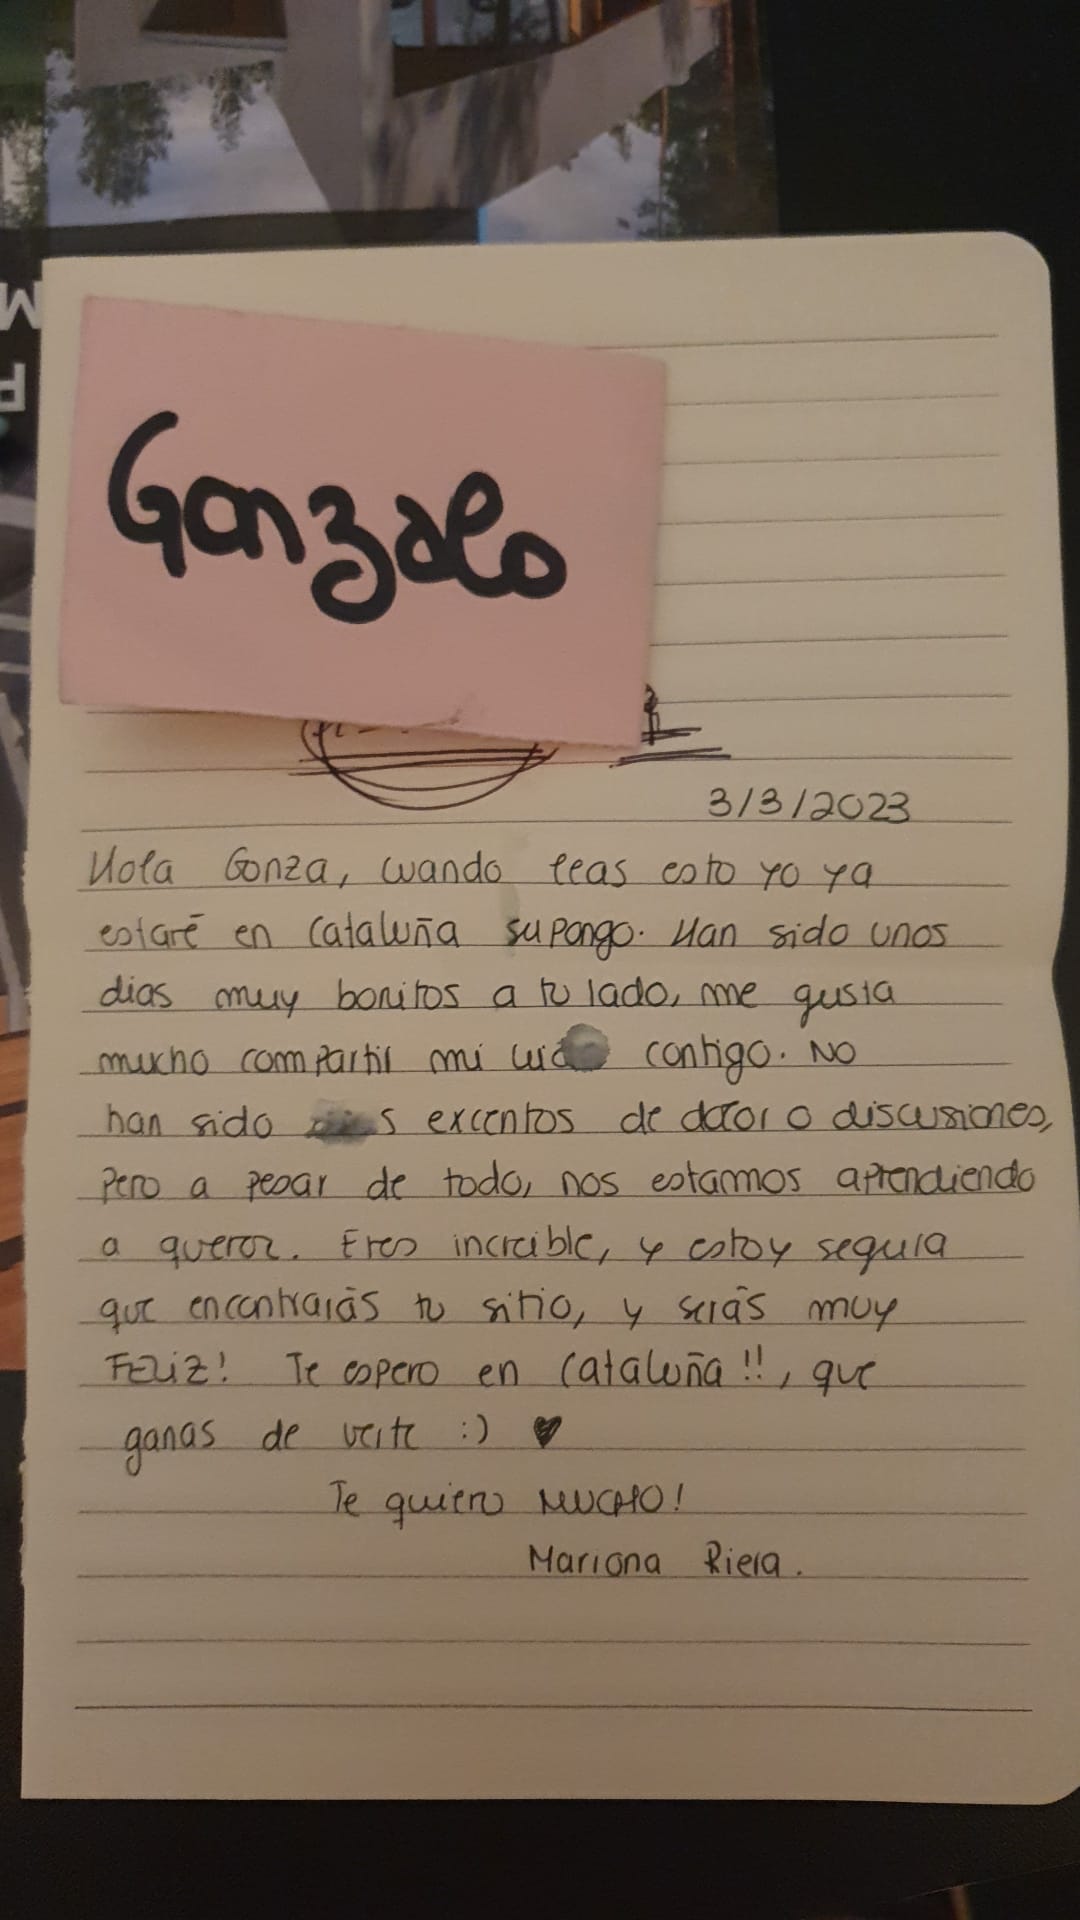 Gonzalo
3/3/2023
Hola Gonza, cuando leas esto yo ya
estaré en Cataluña supongo. Han sido unos
dias muy bonitos a tu lado, me gusta
mucho compartir mi contigo. No
han sido excentos de dolor o discusiones,
pero a pesar de todo, nos estamos aprendiendo
a querer. Eres increible, y estoy segura
que encontrarás tu sitio, y serás muy
FELIZ! Te espero en Cataluña!!, que
ganas de verte :) ♥
Te quiero MUCHO!
Mariona Riera.